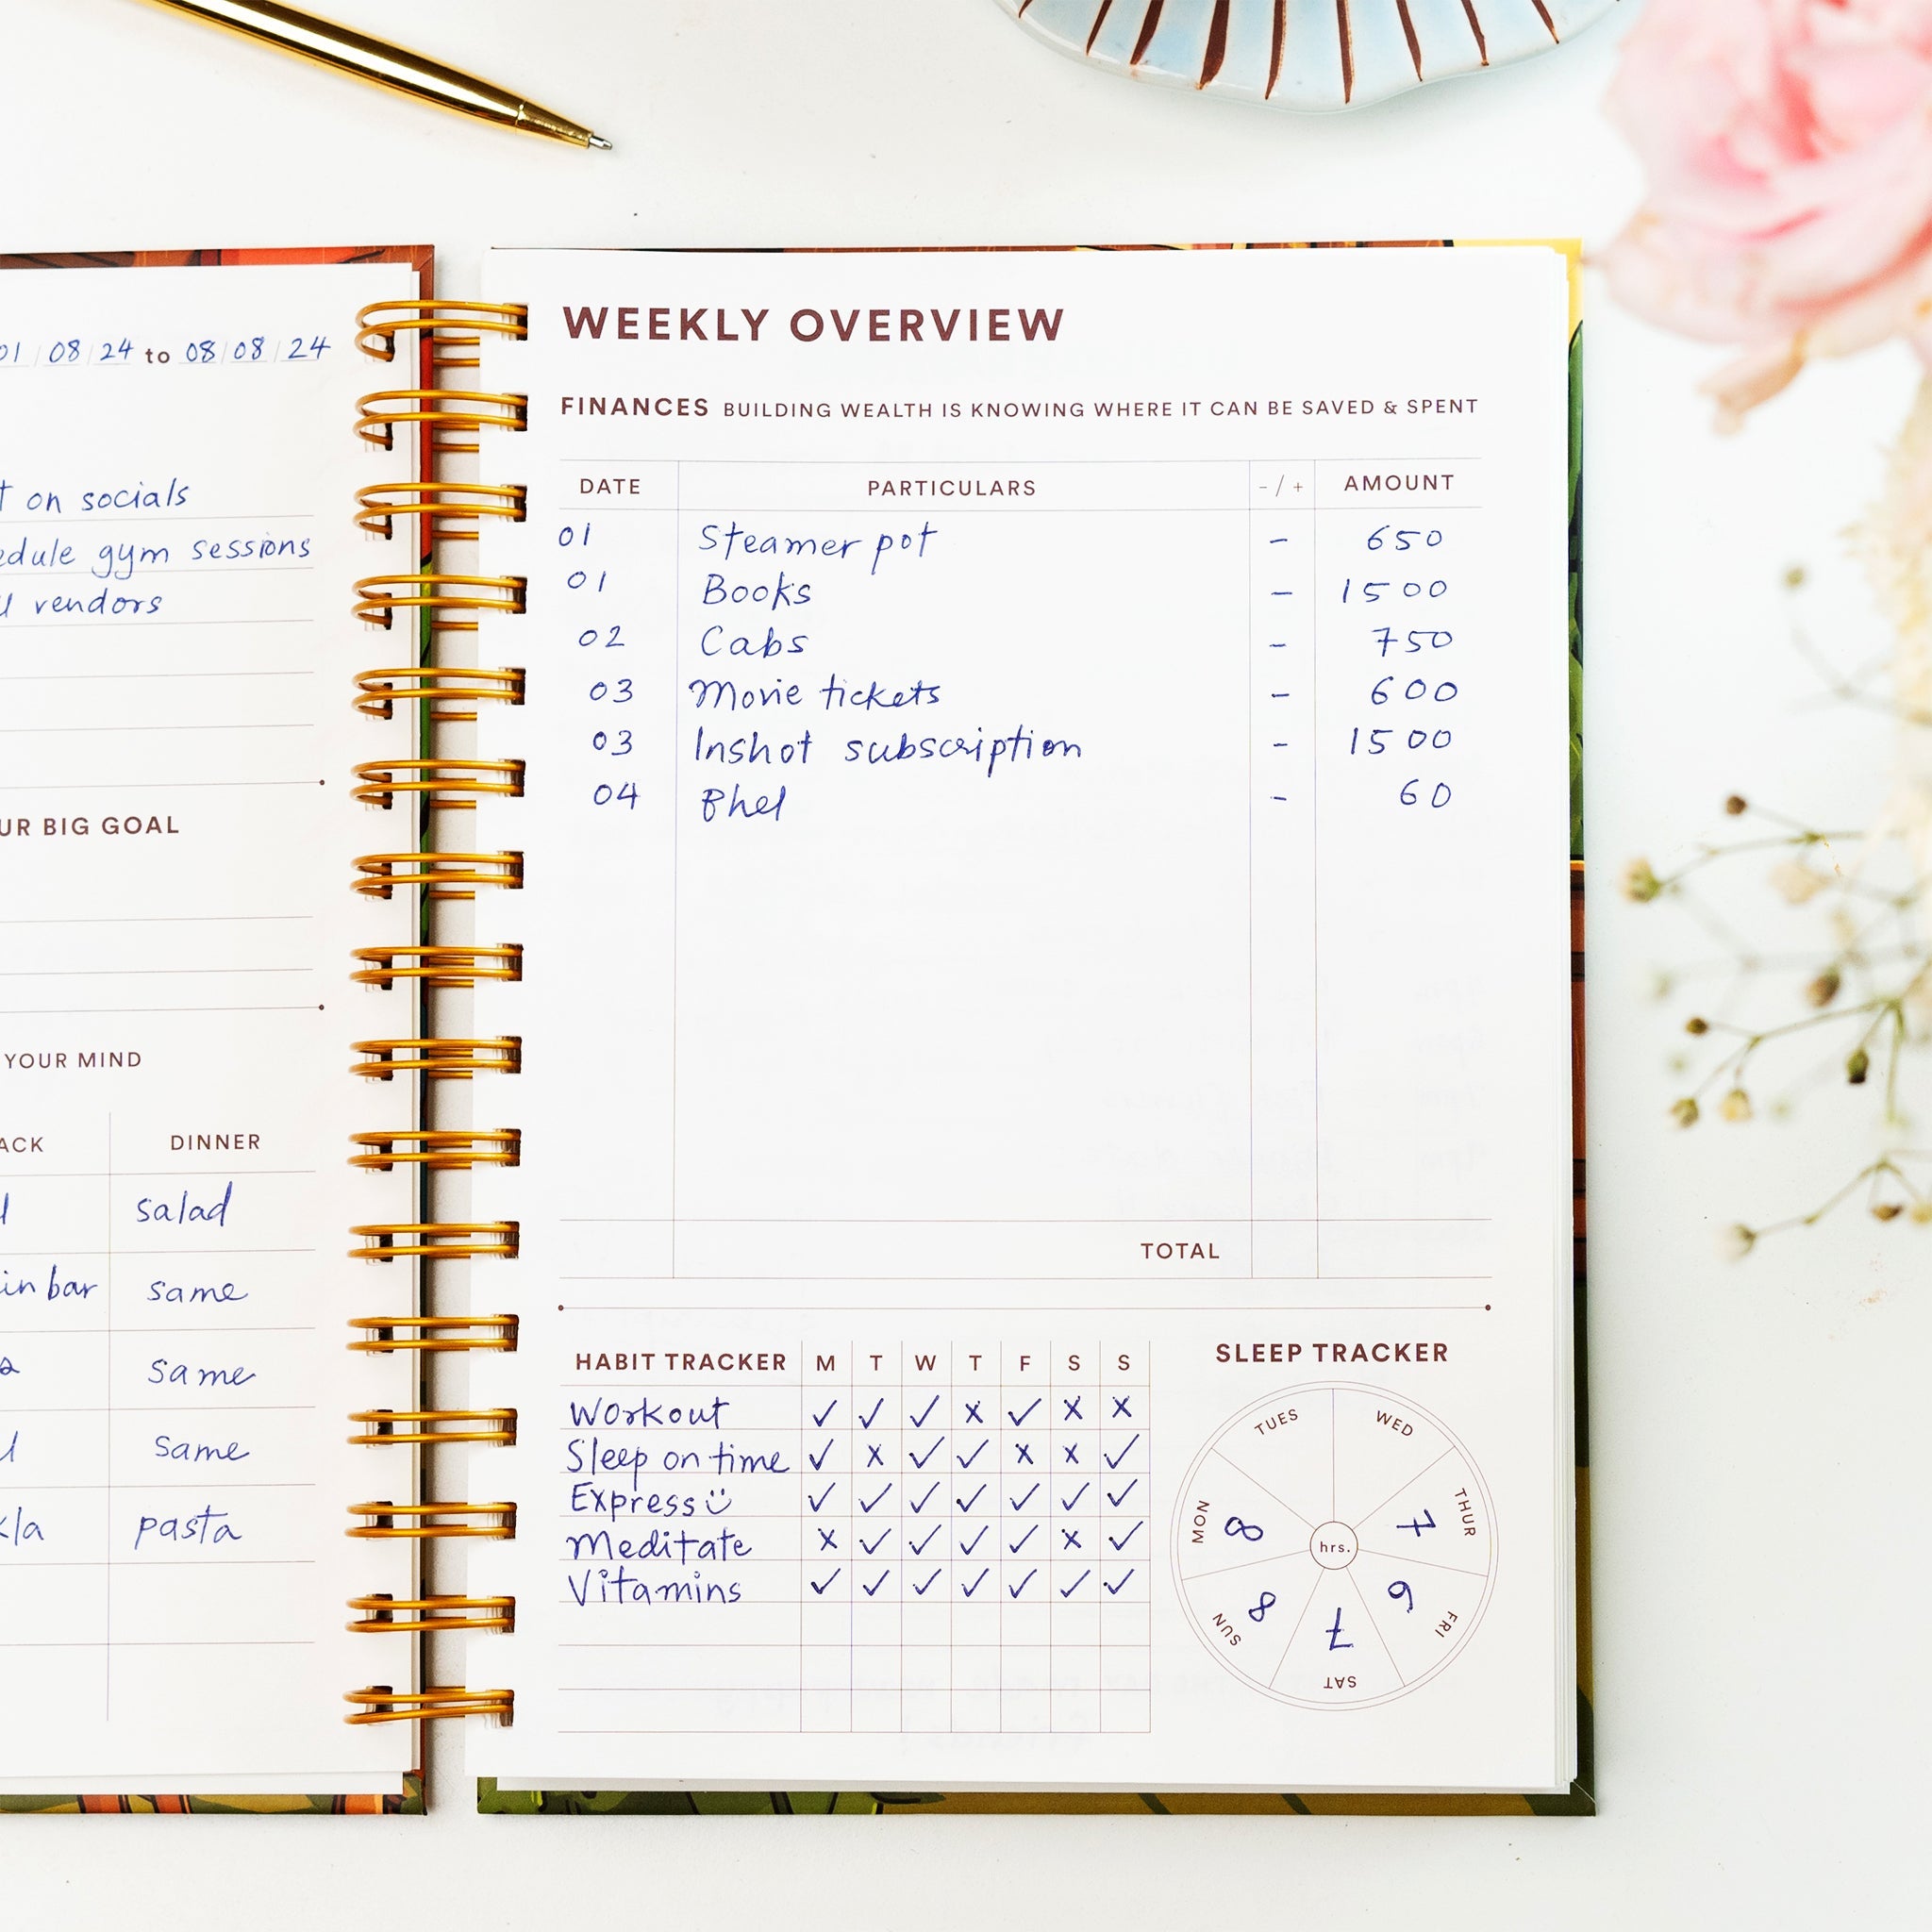 01/08/24 to 08/08/24
on socials
gym sessions
vendors
BIG GOAL
YOUR MIND
DINNER
salad
bar same
same
same
pasta
WEEKLY OVERVIEW
FINANCES BUILDING WEALTH IS KNOWING WHERE IT CAN BE SAVED & SPENT
DATE PARTICULARS - / + AMOUNT
01 Steamer pot - 650
01 Books - 1500
02 Cabs - 750
03 Movie tickets - 600
03 Inshot subscription - 1500
04 Bhel - 60
TOTAL
HABIT TRACKER M T W T F S S
Workout ✓ ✓ ✓ x ✓ x x
Sleep on time ✓ x ✓ ✓ x x ✓
Express ✓ ✓ ✓ ✓ ✓ ✓ ✓
Meditate x ✓ ✓ ✓ ✓ x ✓
Vitamins ✓ ✓ ✓ ✓ ✓ ✓ ✓
SLEEP TRACKER
TUES
WED
THUR 7
FRI 6
SAT 7
SUN 8
MON 8
hrs.